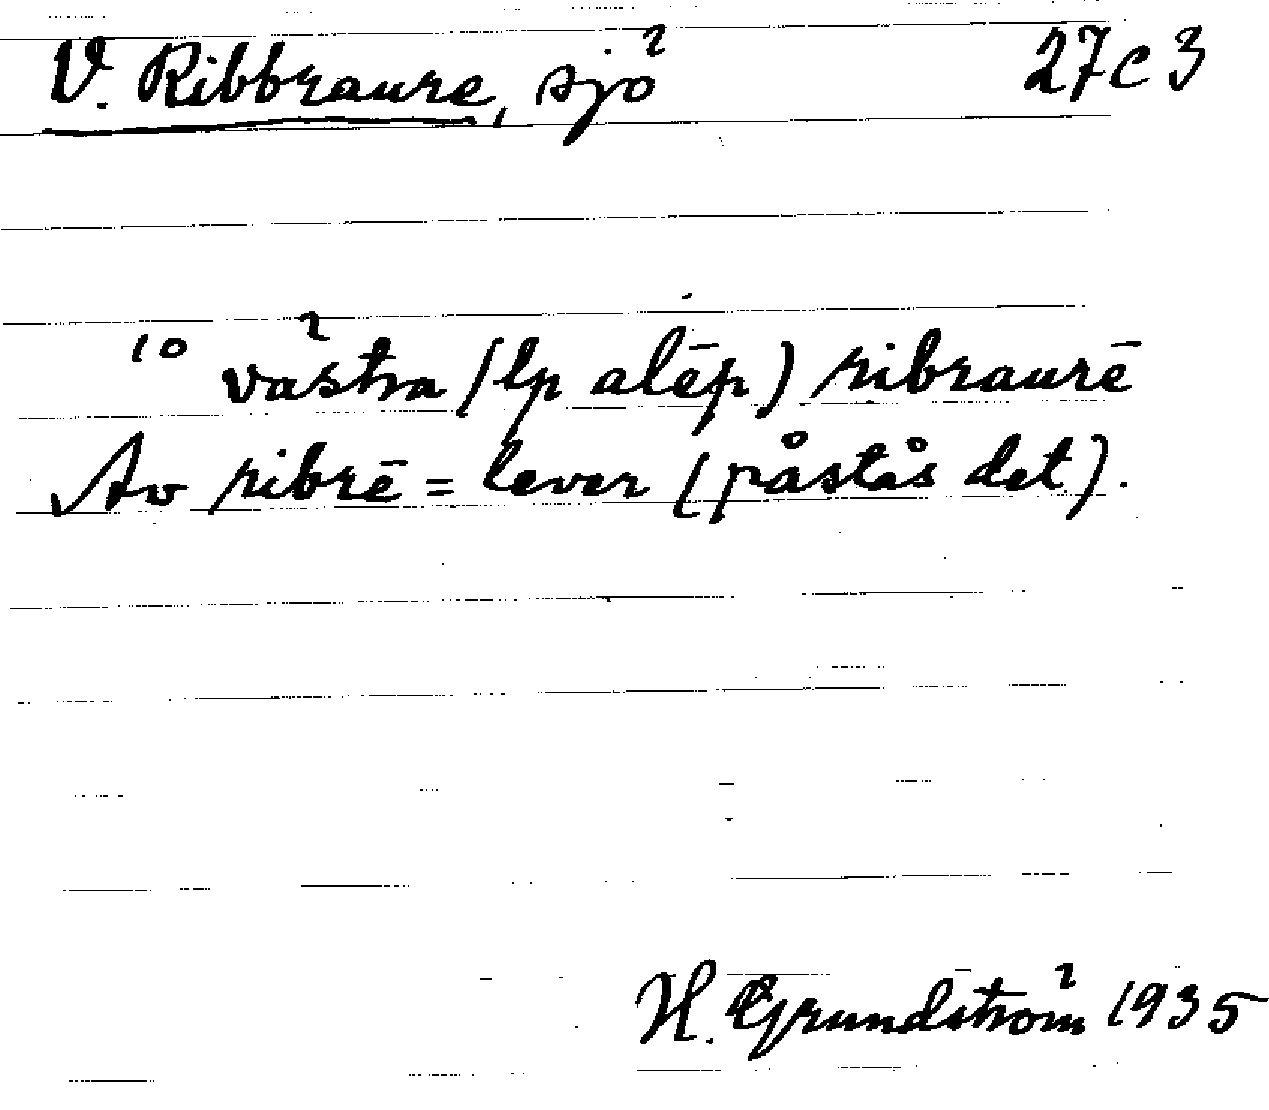 V. Ribbraure, sjö 27c3
10 västra (lp alēp) ribraurē
Av ribrē = lever (påstås det).
H. Grundström 1935